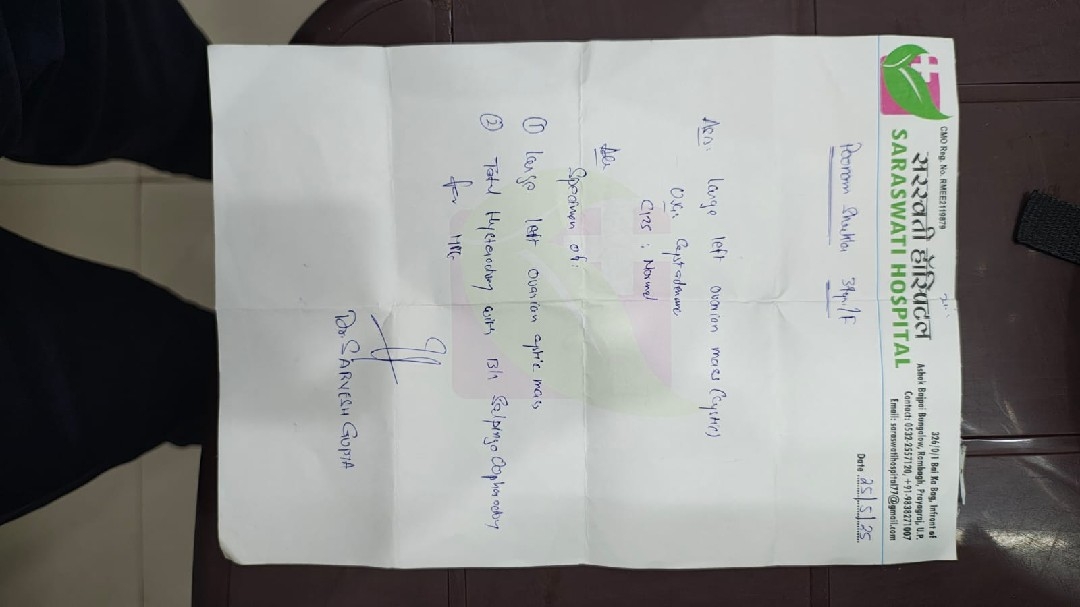 CMO Reg. No. RMEE2119879
सरस्वती हॉस्पिटल
SARASWATI HOSPITAL
326/D/1 Bai Ka Bag, Infront of
Ashok Bajpai Bangalow, Rambagh, Prayagraj, U.P.
Contact: 0532-2557120, +91-9838271007
Email: saraswatihospital77@gmail.com
Date 25/5/25
Poonam Shukla 39yr/F
Large left ovarian mass (cystic)
C125 : Normal
Specimen of:
① Large left ovarian cystic mass
② Total Hysterectomy with B/l Salpingo Oophorectomy
for HPE
Dr SARVESH GUPTA